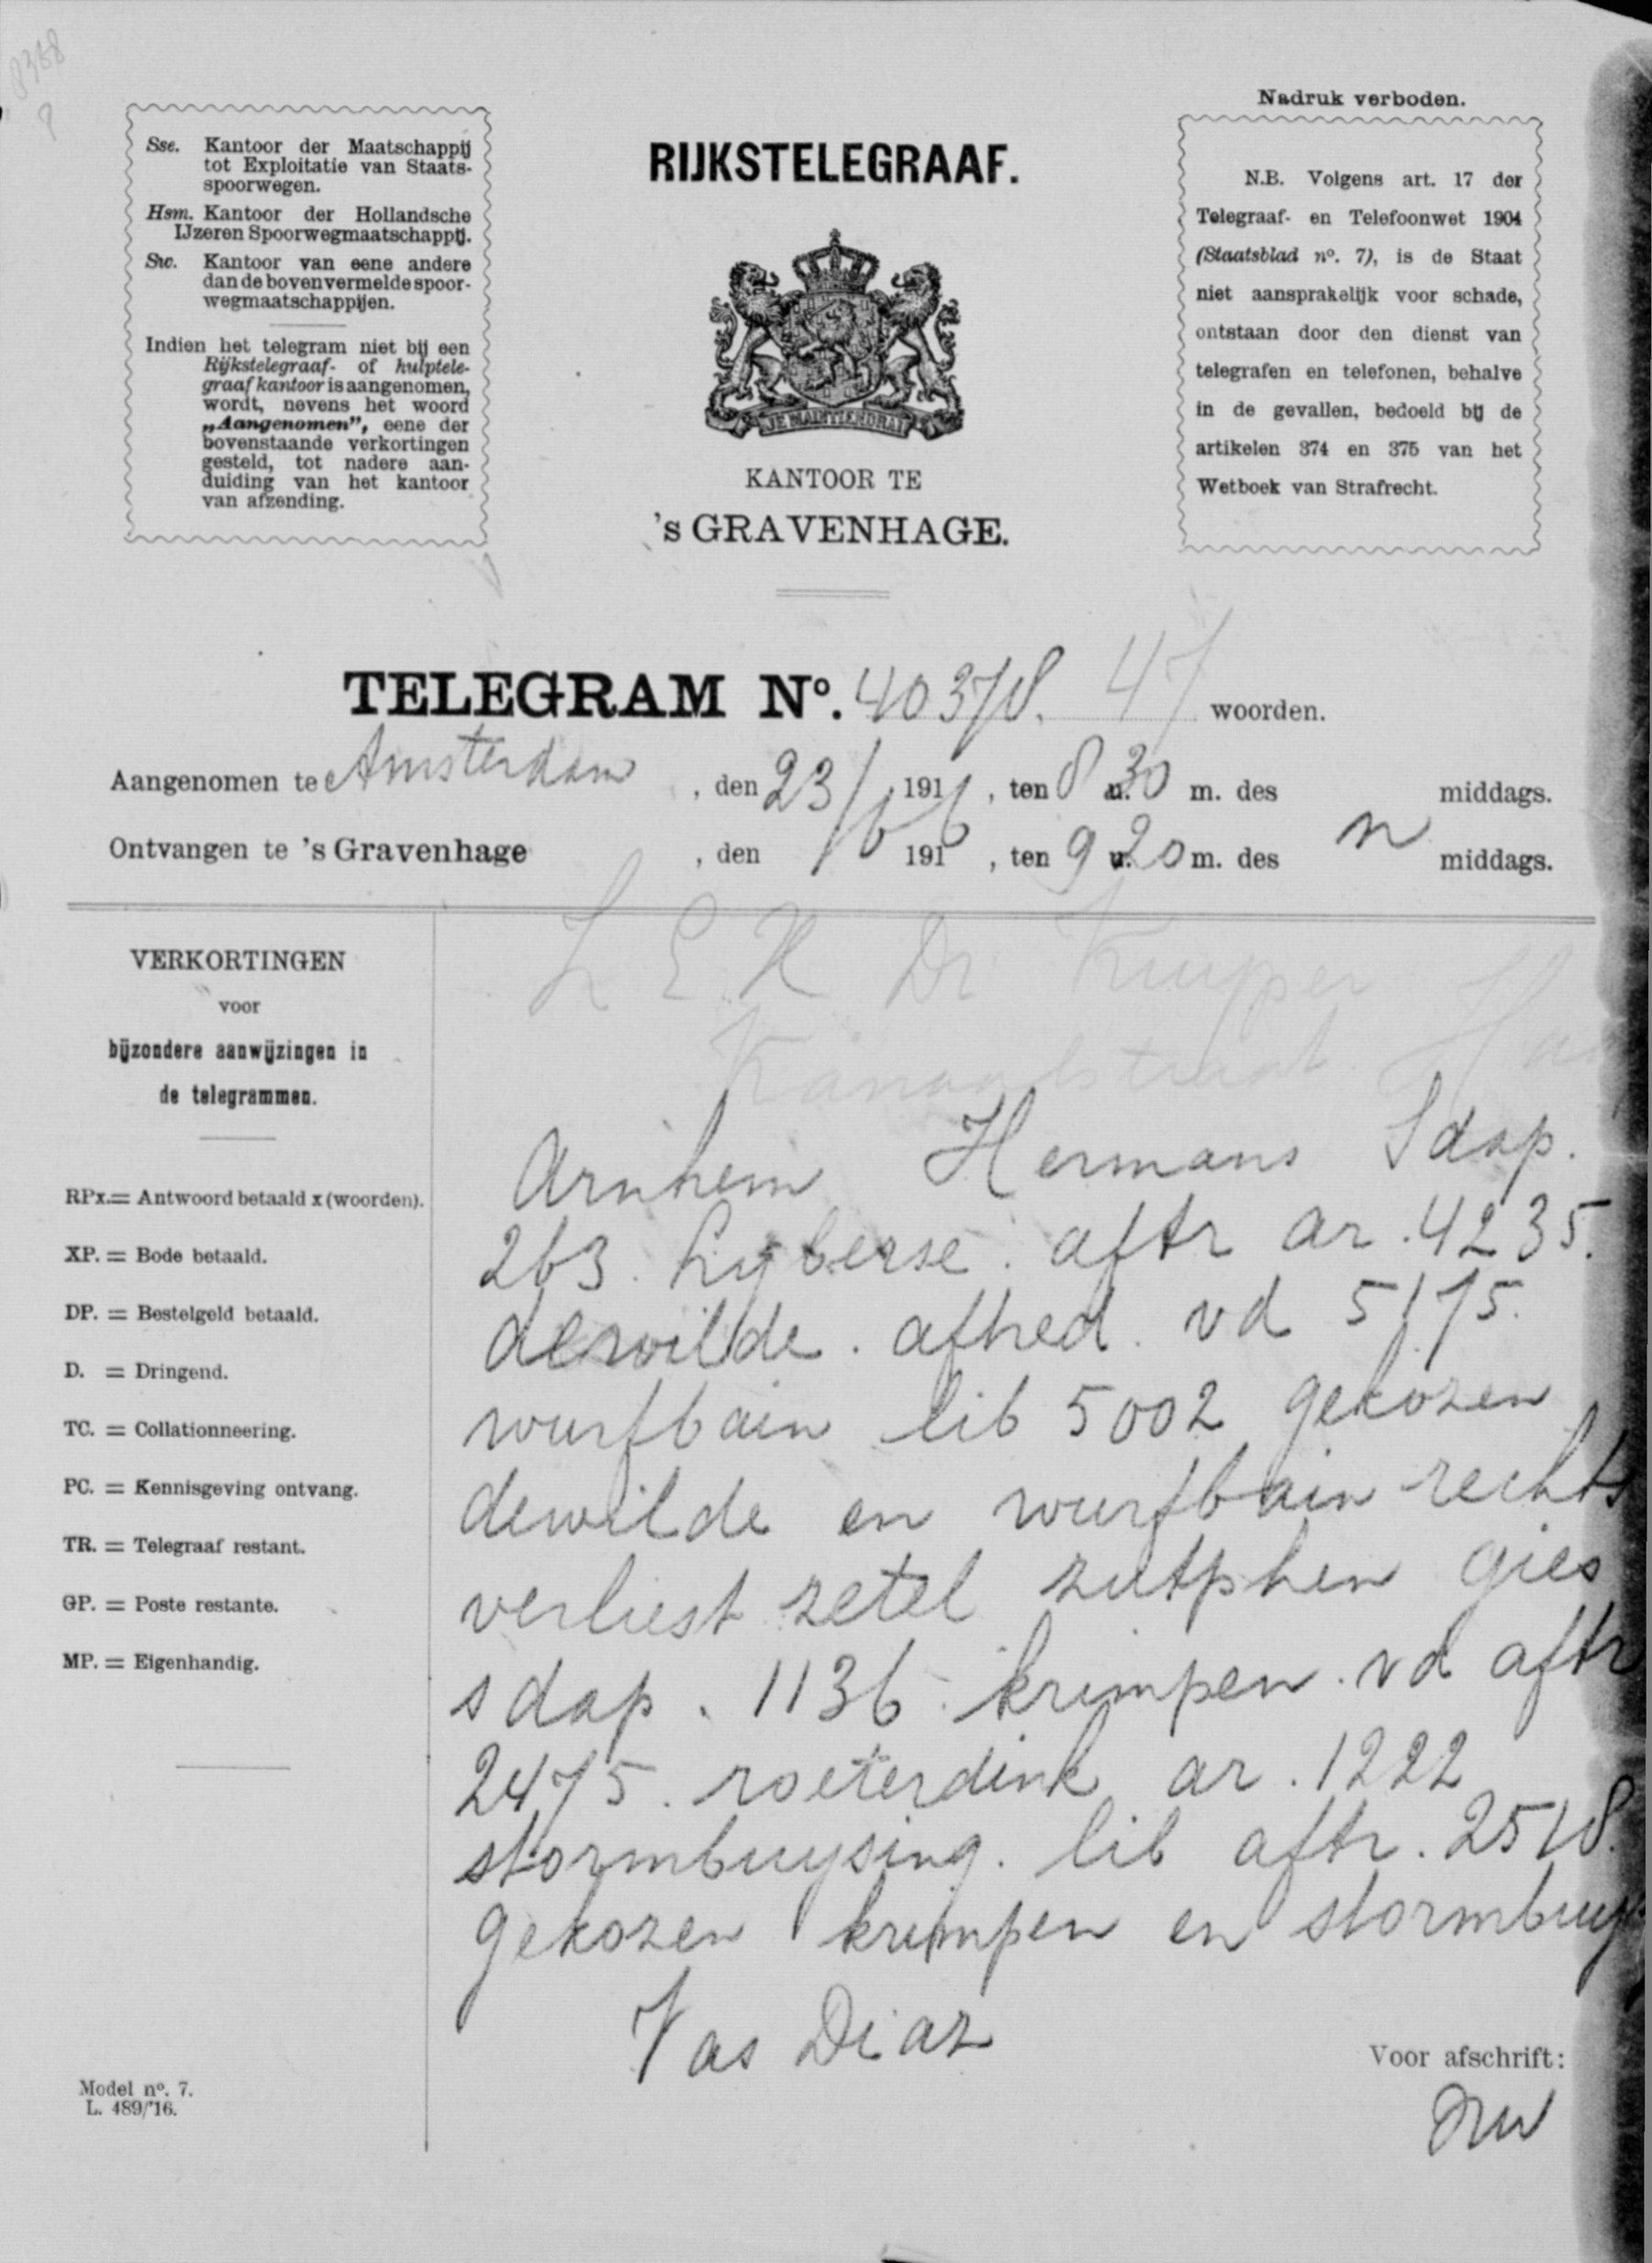 8368
Nadruk verboden.
Sse. Kantoor der Maatschappij
tot Exploitatie van Staats-
spoorwegen.
Hsm. Kantoor der Hollandsche
IJzeren Spoorwegmaatschappij.
Sw. Kantoor van eene andere
dan de bovenvermelde spoor-
wegmaatschappijen.
Indien het telegram niet bij een
Rijkstelegraaf- of hulptele-
graafkantoor is aangenomen,
wordt, nevens het woord
„Aangenomen”, eene der
bovenstaande verkortingen
gesteld, tot nadere aan-
duiding van het kantoor
van afzending.
RIJKSTELEGRAAF.
JE MAINTIENDRAI
KANTOOR TE
's GRAVENHAGE.
N.B. Volgens art. 17 der
Telegraaf- en Telefoonwet 1904
(Staatsblad nº. 7), is de Staat
niet aansprakelijk voor schade,
ontstaan door den dienst van
telegrafen en telefonen, behalve
in de gevallen, bedoeld bij de
artikelen 374 en 375 van het
Wetboek van Strafrecht.
TELEGRAM Nº. 40378. 47 woorden.
Aangenomen te Amsterdam, den 23/6 1916, ten 8 u. 30 m. des middags.
Ontvangen te 's Gravenhage, den 191, ten 9 u. 20 m. des n middags.
VERKORTINGEN
voor
bijzondere aanwijzingen in
de telegrammen.
RPx.= Antwoord betaald x (woorden).
XP. = Bode betaald.
DP. = Bestelgeld betaald.
D. = Dringend.
TC. = Collationneering.
PC. = Kennisgeving ontvang.
TR. = Telegraaf restant.
GP. = Poste restante.
MP. = Eigenhandig.
Z E X Dr Kuyper
Kanaalstraat Ha
Arnhem Hermans Sdap.
263. hyberse. aftr ar. 4235.
dewilde. afhed. vd 5175.
wurfbain lib 5002 gekozen
dewilde en wurfbain rechts
verliest zetel zutphen gies
sdap. 1136. krimpen. vd aftr
2475. roeterdink ar. 1222
stormbuysing. lib aftr. 2518.
gekozen krimpen en stormbuy
Vas Diaz
Voor afschrift:
Model nº. 7.
L. 489/'16.